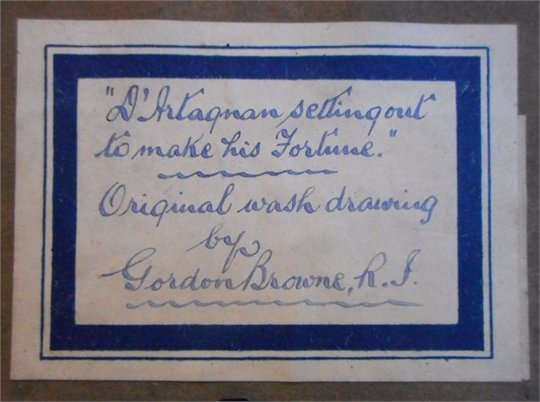 "D'Artagnan setting out
to make his Fortune."
Original wash drawing
by
Gordon Browne, R.I.